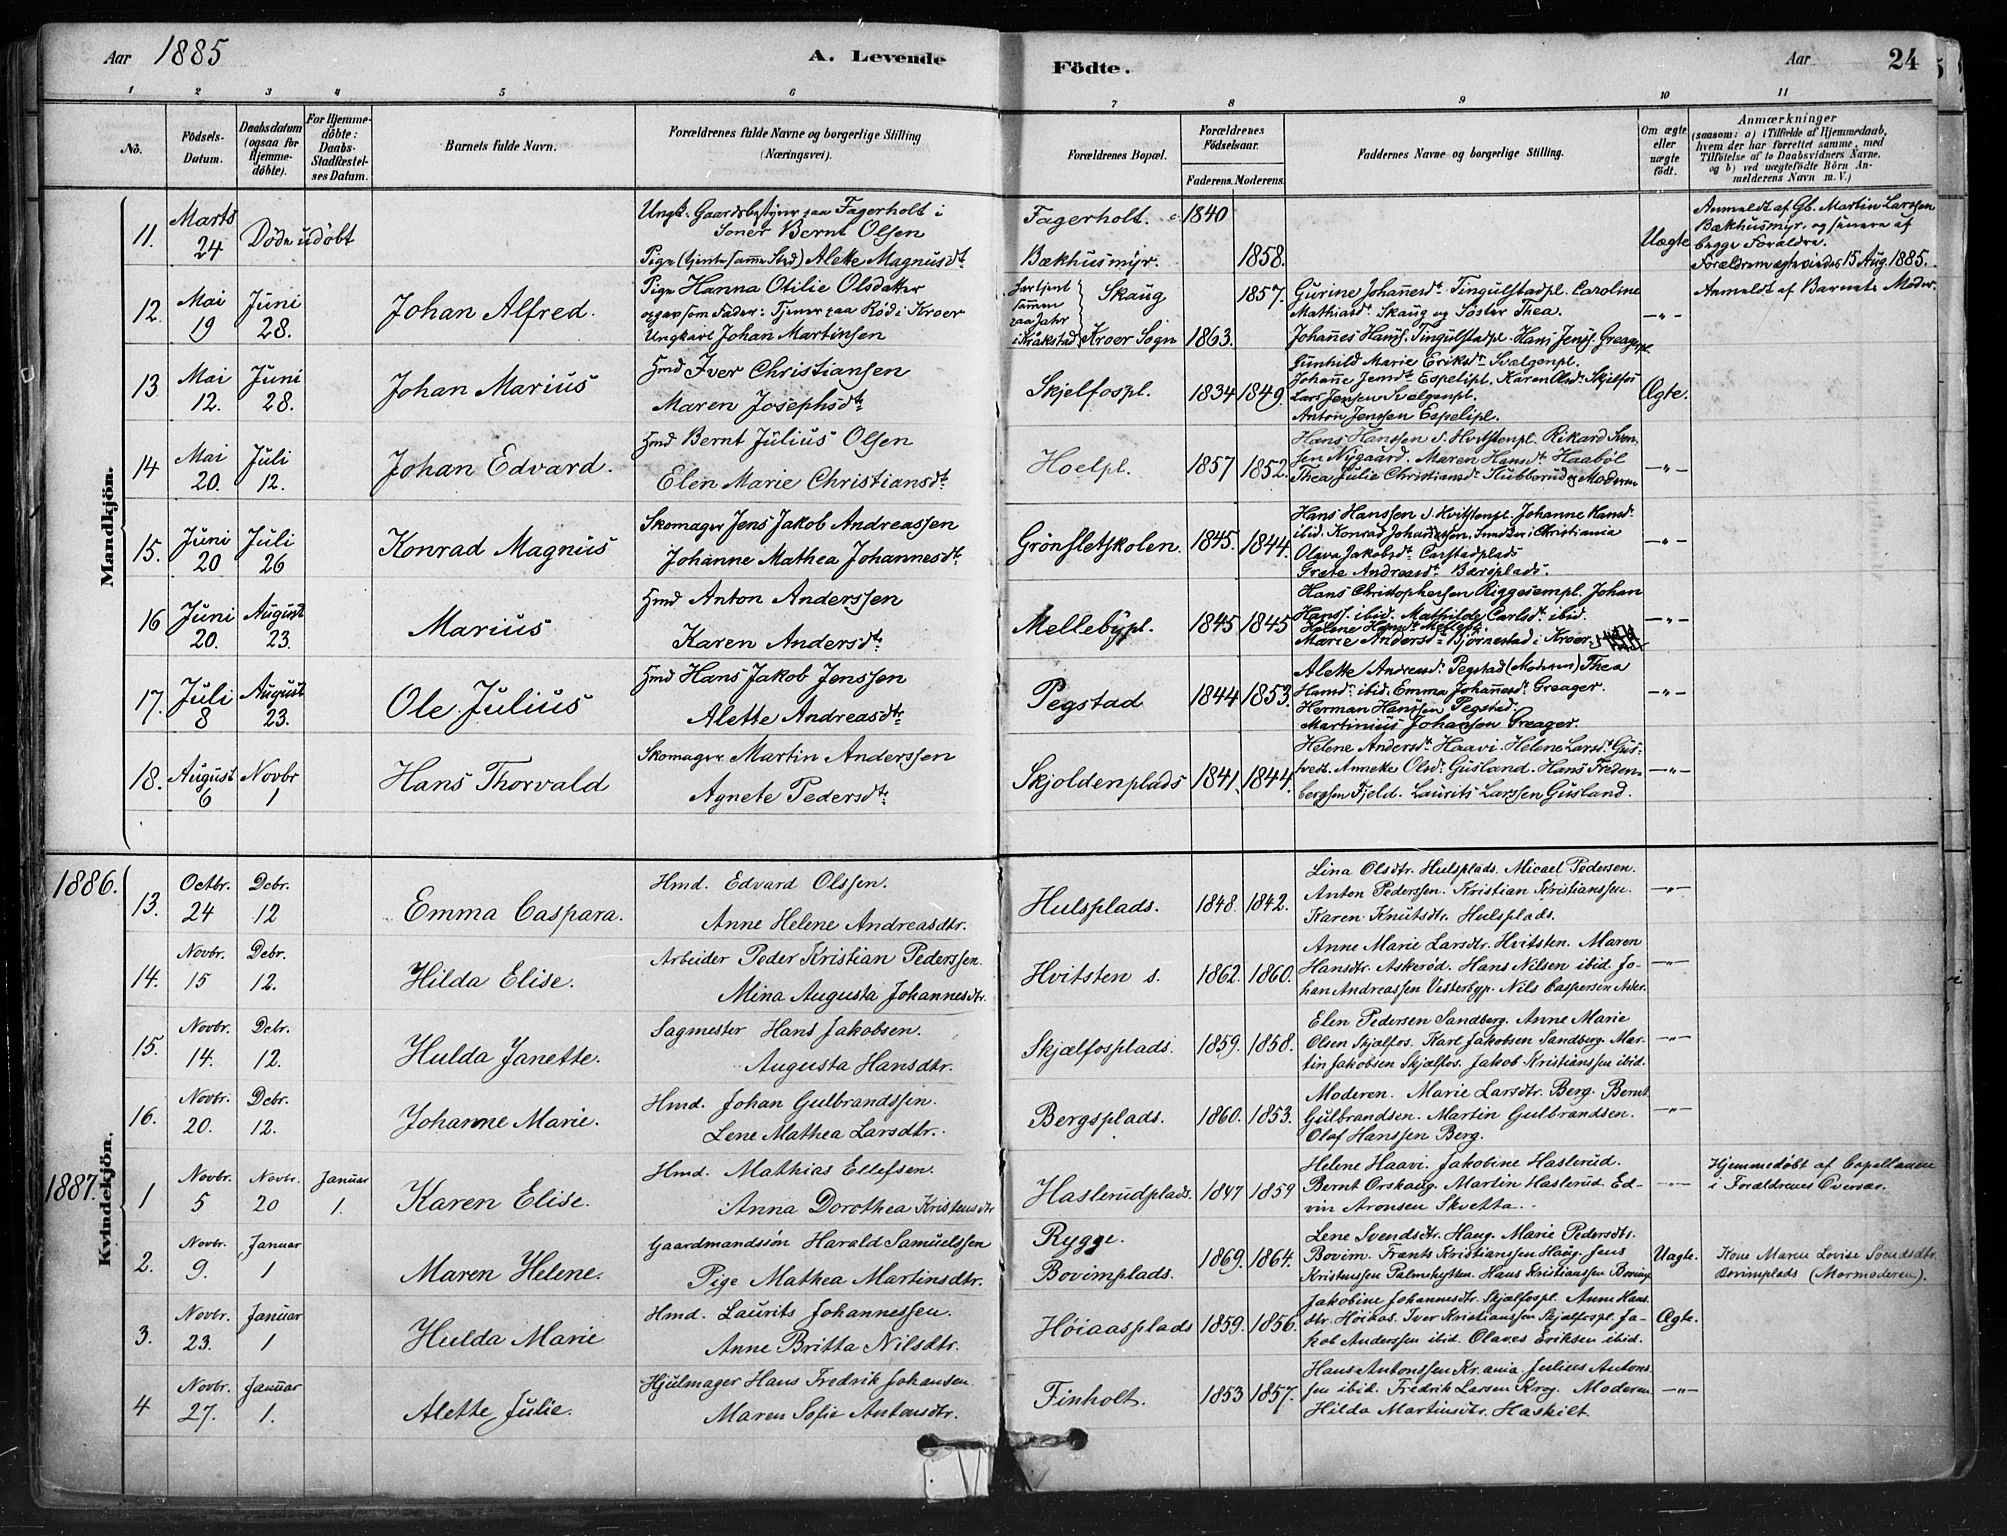 Aar 1885 A. Levende Födte. Aar 24
1 2 3 4 5 6 7 8 9 10 11
No.
Födsels-
Datum.
Daabsdatum
(ogsaa for
Hjemme-
döbte).
For Hjemme-
döbte:
Daabs-
Stadfæstel-
ses Datum.
Barnets fulde Navn.
Forældrenes fulde Navne og borgerlige Stilling
(Næringsvei).
Forældrenes Bopæl.
Forældrenes
Födselsaar.
Faderens. Moderens.
Faddernes Navne og borgerlige Stilling.
Om ægte
eller
uægte
födt.
Anmærkninger
(saasom: a) i Tilfælde af Hjemmedaab,
hvem der har forrettet samme, med
Tilföielse af to Daabsvidners Navne.
og b) ved uægtefödte Börn An-
melderens Navn m. V.)
Mandkjön.
11. Marts 24 Döde udöbt
Ungk. Gaardsbestyrer paa Fagerholt i
Soner Bernt Olsen
Pige (tjente samme Sted) Alette Magnusdtr
Fagerholt. 1840
Bækhusmyr. 1858.
Uægte
Anmeldt af Gb. Martin Larssen
Bækhusmyr, og senere af
begge Forældre.
Forældrene egteviedes 15 Aug. 1885.
12. Mai 19 Juni 28. Johan Alfred.
Pige Hanna Otilie Olsdatter
opgav som Fader: Tjener paa Röd i Kroer
Ungkarl Johan Martinsen
Har tjent
sammen
paa Jahr
i Kråkstad
Skaug 1857.
Kroer Sogn 1863.
Gurine Johannesdt. Tingulstadpl. Caroline
Mathiasdt. Skaug og Söster Thea.
Johannes Hanss. Tingulstadpl. Hans Jenss. Greagerpl.
-"-
Anmeldt af Barnets Moder.
13 Mai 12. Juni 28. Johan Marius
Hmd Iver Christiansen
Maren Josephsdtr
Skjelfospl. 1834 1849.
Gunhild Marie Eriksdt. Svalgenpl.
Johanne Jensdt. Espelipl. Karen Olsdt. Skjelfos
Lars Jensen Svalgenpl.
Anton Jenssen Espelipl.
Ægte.
14 Mai 20. Juli 12. Johan Edvard.
Hmd Bernt Julius Olsen
Elen Marie Christiansdtr
Hoelpl. 1857 1852.
Hans Hanssen s. Hvitstenpl. Rikard Sven-
sen Nygaard. Maren Hansdt. Haaböl
Thea Julie Christiansdt. Stubberud og Moderen
-"-
15. Juni 20 Juli 26 Konrad Magnus
Skomager Jens Jakob Andreassen
Johanne Mathea Johannesdtr
Grönsletskolen. 1845. 1844.
Hans Hanssen s. Hvitstenpl. Johanne Hansdt.
ibid. Konrad Johannessen. Smedsv. i Christiania
Olava Jakobsdt. Carstadplads
Grete Andreasdt. Bærsplads.
-"-
16 Juni 20. August 23. Marius
Hmd Anton Anderssen
Karen Andersdtr
Mellebypl. 1845 1845
Hans Christophersen Riggesempl. Johan
Hanss. ibid. Mathilde Carlsdt. ibid.
Helene Hansdt. Mellebpl.
Marie Andersdt. Björnestad i Kroer.
-"-
17. Juli 8 August 23. Ole Julius
Hmd Hans Jakob Jenssen
Alette Andreasdtr
Pegstad 1844 1853.
Alette Andreasdt. Pegstad (Moderen) Thea
Hansdt. ibid. Emma Johannesdt. Greager.
Herman Hanssen Pegstad.
Martinius Johansen Greager.
-"-
18. August 6 Novbr 1 Hans Thorvald
Skomager Martin Anderssen
Agnete Pedersdtr
Skjoldenplads 1841. 1844.
Helene Andersdt. Haavi. Helene Larsdt. Gus-
tvedt. Annette Olsdt. Gusland. Hans Freden-
bergsen Fjeld. Laurits Larssen Gusland.
-"-
Kvindekjön.
1886.
13. Octbr. 24 Dcbr. 12 Emma Caspara.
Hmd. Edvard Olssen.
Anne Helene Andreasdtr.
Hulsplads. 1848. 1842.
Lina Olsdtr. Hulsplads. Micael Pedersen.
Anton Pederssen. Kristian Kristianssen.
Karen Knutsdtr. Hulsplads.
-"-
14. Novbr. 15 Dcbr. 12. Hilda Elise.
Arbeider Peder Kristian Pederssen.
Mina Augusta Johannesdtr.
Hvitsten s. 1862. 1860.
Anne Marie Larsdtr. Hvitsten. Maren
Hansdtr. Askeröd. Hans Nilsen ibid. Jo-
han Andreassen Vesterbyp. Nils Caspersen Asker.
-"-
15. Novbr. 14. Dcbr. 12. Hulda Janette.
Sagmester Hans Jakobsen.
Augusta Hansdtr.
Skjælfosplads. 1859. 1858.
Elen Pedersen Sandberg. Anne Marie
Olsen Skjælfos. Karl Jakobsen Sandberg. Mar-
tin Jakobsen Skjælfos. Jakob Kristianssen ibid.
-"-
16. Novbr. 20. Dcbr. 12. Johanne Marie.
Hmd. Johan Gulbrandssen.
Lene Mathea Larsdtr.
Bergsplads. 1860. 1853.
Moderen. Marie Larsdtr. Berg. Bernt
Gulbrandsen. Martin Gulbrandsen.
Olaf Hanssen Berg.
-"-
1887.
1 Novbr. 5 Novbr. 20 Januar 1. Karen Elise.
Hmd. Mathias Ellefsen.
Anna Dorothea Kristensdtr
Haslerudplads. 1847 1859
Helene Haavi. Jakobine Haslerud.
Bernt Orskaug. Martin Haslerud. Ed-
vin Aronsen Skvetta.
-"-
Hjemmedöbt af Capellanen
i Forældrenes Overvær.
2. Novbr. 9. Januar 1 Maren Helene.
Gaardmandssön Harald Samuelssen
Pige Mathea Martinsdtr.
Rygge. 1869.
Bovimplads. 1864.
Lene Svendsdtr. Haug. Marie Pedersdtr.
Bovim. Frants Kristianssen Haug. Jens
Kristenssen Palmehytten. Hans Kristianssen Bovimp
Uægte.
Kone Maren Lovise Svendsdtr.
Bovimplads (Mormoderen).
3. Novbr. 23. Januar 1 Hulda Marie
Hmd. Laurits Johannessen.
Anne Britta Nilsdtr.
Höiaasplads 1859. 1856.
Jakobine Johannesdtr. Skjælfospl. Anne Hans-
dtr. Höiaas. Iver Kristianssen Skjælfospl. Ja-
kob Anderssen ibid. Olaves Eriksen ibid.
Ægte.
4 Novbr. 27. Januar 1. Alette Julie.
Hjulmager Hans Fredrik Johansen
Maren Sofie Antonsdtr.
Finholt. 1853 1857.
Hans Antonssen Kr.ania. Julius Antons-
sen ibid. Fredrik Larsen Krog. Moderen
Hilda Martinsdtr. Haskilt.
-"-